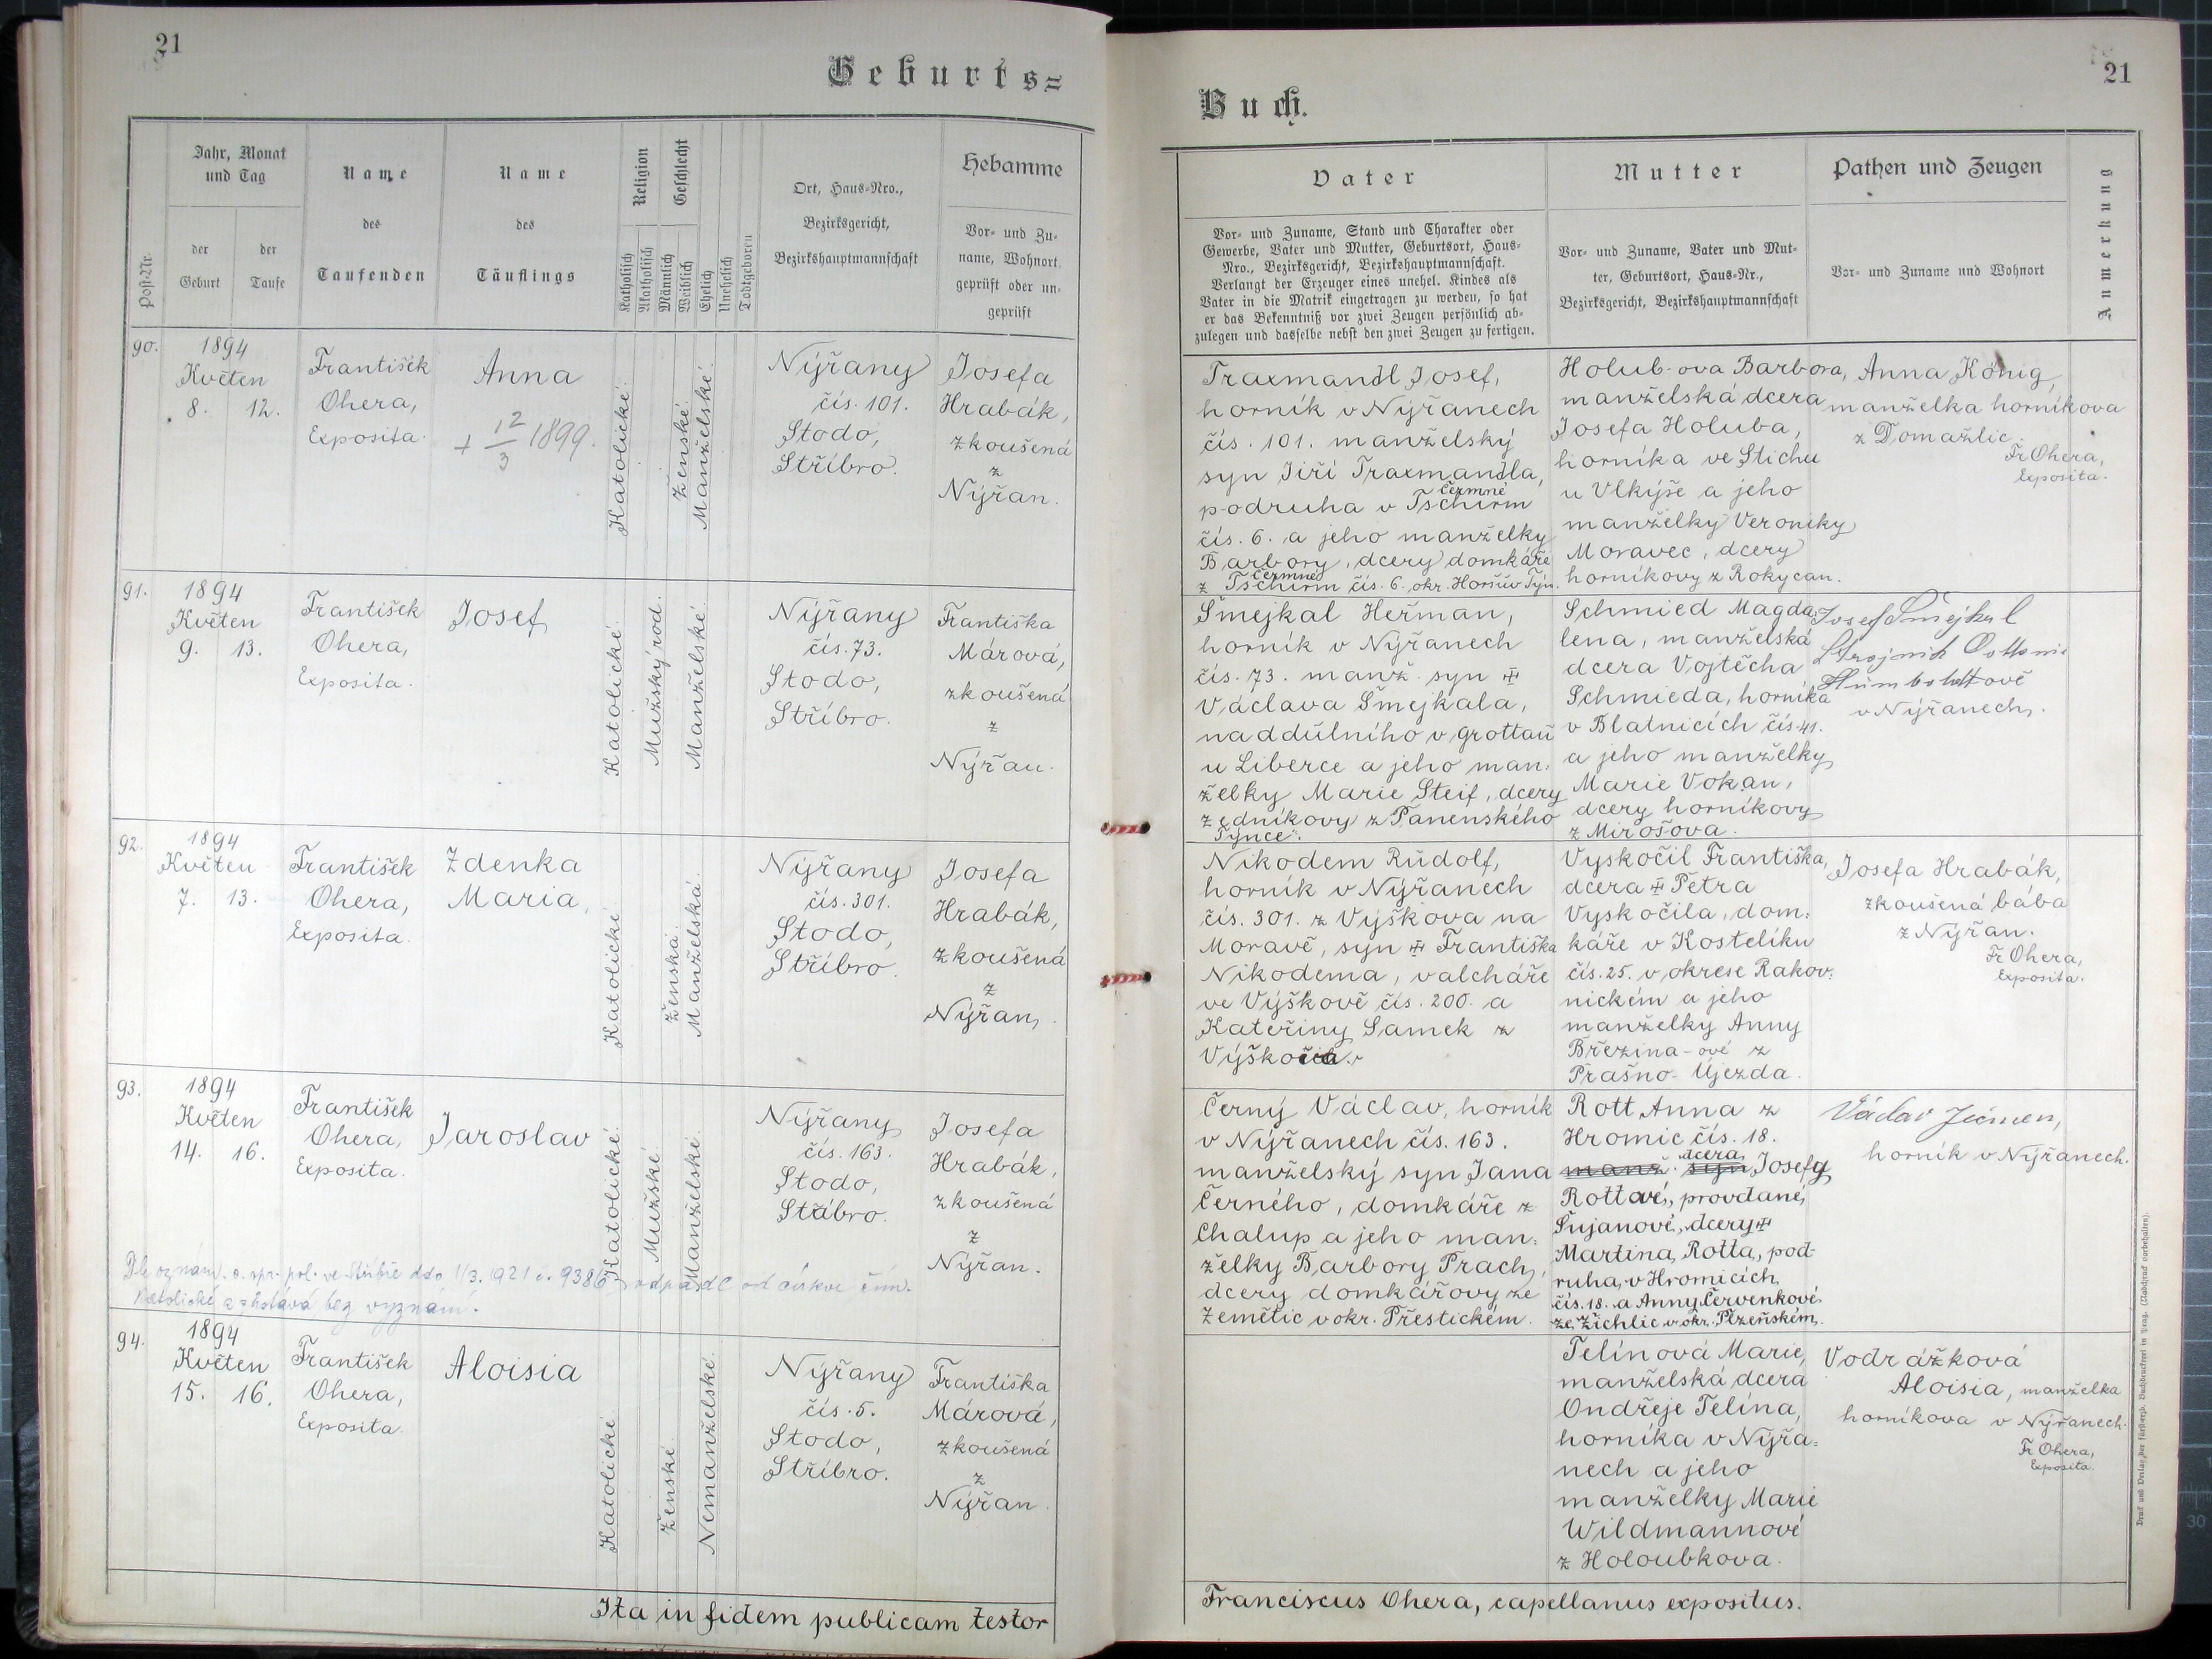 21
Geburts=
Jahr, Monat
und Tag
Name
Name
Religion
Geschlecht
Ort, Haus-Nro.,
Hebamme
Post-Nr.
der
Geburt
der
Taufe
des
Taufenden
des
Täuflings
Katholisch
Akatholisch
Männlich
Weiblich
Ehelich
Unehelich
Todtgeboren
Bezirksgericht,
Bezirkshauptmannschaft
Vor- und Zu-
name, Wohnort,
geprüft oder un-
geprüft
90.
1894
Květen
8. 12.
František
Ohera,
Exposita.
Anna
+ 12/3 1899.
Katolické.
Ženské.
Manželské.
Nýřany
čís. 101.
Stodo,
Stříbro.
Josefa
Hrabák,
zkoušená
z
Nýřan.
91.
1894
Květen
9. 13.
František
Ohera,
Exposita.
Josef
Katolické.
Mužský rod.
Manželské.
Nýřany
čís. 73.
Stodo,
Stříbro.
Františka
Márová,
zkoušená
z
Nýřan.
92.
1894
Květen
7. 13.
František
Ohera,
Exposita.
Zdenka
Maria,
Katolické.
Ženská.
Manželská.
Nýřany
čís. 301.
Stodo,
Stříbro.
Josefa
Hrabák,
zkoušená
z
Nýřan.
93.
1894
Květen
14. 16.
František
Ohera,
Exposita.
Jaroslav
Katolické.
Mužské.
Manželské.
Nýřany
čís. 163.
Stodo,
Stříbro.
Josefa
Hrabák,
zkoušená
z
Nýřan.
Dle oznám. o. spr. pol. ve Stříbře ddo 1/3. 1921 č. 9386 odpadl od církve řím.
katolické a zůstává bez vyznání.
94.
1894
Květen
15. 16.
František
Ohera,
Exposita.
Aloisia
Katolické.
Ženské.
Nemanželské.
Nýřany
čís. 5.
Stodo,
Stříbro.
Františka
Márová,
zkoušená
z
Nýřan.
Ita in fidem publicam testor
21
Buch.
Vater
Mutter
Pathen und Zeugen
Anmerkung
Vor- und Zuname, Stand und Charakter oder
Gewerbe, Vater und Mutter, Geburtsort, Haus-
Nro., Bezirksgericht, Bezirkshauptmannschaft.
Verlangt der Erzeuger eines unehel. Kindes als
Vater in die Matrik eingetragen zu werden, so hat
er das Bekenntniß vor zwei Zeugen persönlich ab-
zulegen und dasselbe nebst den zwei Zeugen zu fertigen.
Vor- und Zuname, Vater und Mut-
ter, Geburtsort, Haus-Nr.,
Bezirksgericht, Bezirkshauptmannschaft
Vor- und Zuname und Wohnort
Traxmandl Josef,
horník v Nýřanech
čís. 101. manželský
syn Jiří Traxmandla,
Čermné
podruha v Tschirm
čís. 6. a jeho manželky
Barbory, dcery domkáře
Čermné
z Tschirm čís. 6. okr. Horšův Týn.
Holub-ova Barbora,
manželská dcera
Josefa Holuba,
horníka ve Stichu
u Vlkýše a jeho
manželky Veroniky
Moravec, dcery
horníkovy z Rokycan.
Anna König,
manželka horníkova
z Domažlic.
Fr Ohera,
Exposita.
Šmejkal Heřman,
horník v Nýřanech
čís. 73. manž. syn ✠
Václava Šmejkala,
naddůlního v Grottau
u Liberce a jeho man:
želky Marie Steif, dcery
zedníkovy z Panenského
Týnce.
Schmied Magda-
lena, manželská
dcera Vojtěcha
Schmieda, horníka
v Blatnicích čís. 41.
a jeho manželky
Marie Vokan,
dcery horníkovy
z Mirošova.
Josef Šmejkal
Strojník
Humboldtově
v Nýřanech.
Nikodem Rudolf,
horník v Nýřanech
čís. 301. z Vyškova na
Moravě, syn ✠ Františka
Nikodema, valcháře
ve Výškově čís. 200. a
Kateřiny Samek z
Vyskočil Františka,
dcera ✠ Petra
Vyskočila, dom:
káře v Kostelíku
čís. 25. v okrese Rakov:
nickém a jeho
manželky Anny
Březina-ové z
Prašno-Újezda.
Josefa Hrabák,
zkoušená bába
z Nýřan.
Fr Ohera,
Exposita.
Černý Václav, horník
v Nýřanech čís. 163.
manželský syn Jana
Černého, domkáře z
Chalup a jeho man:
želky Barbory Prach,
dcery domkářovy ze
Zemětic v okr. Přestickém.
Rott Anna z
Hromic čís. 18.
dcera
manž. syn Josefy
Rottové, provdané,
Šujanové, dcery ✠
Martina Rotta, pod-
ruha v Hromicích
čís. 18. a Anny Červenkové
ze Žichlic v okr. Plzeňském.
Václav Ječmen,
horník v Nýřanech.
Telínová Marie,
manželská dcera
Ondřeje Telína,
horníka v Nýřa:
nech a jeho
manželky Marie
Wildmannové
z Holoubkova.
Vodrážková
Aloisia, manželka
horníkova v Nýřanech.
Fr Ohera,
Exposita.
Franciscus Ohera, capellanus expositus.
Druck und Verlag der fürsterzb. Buchdruckerei in Prag. (Nachdruck vorbehalten).
30